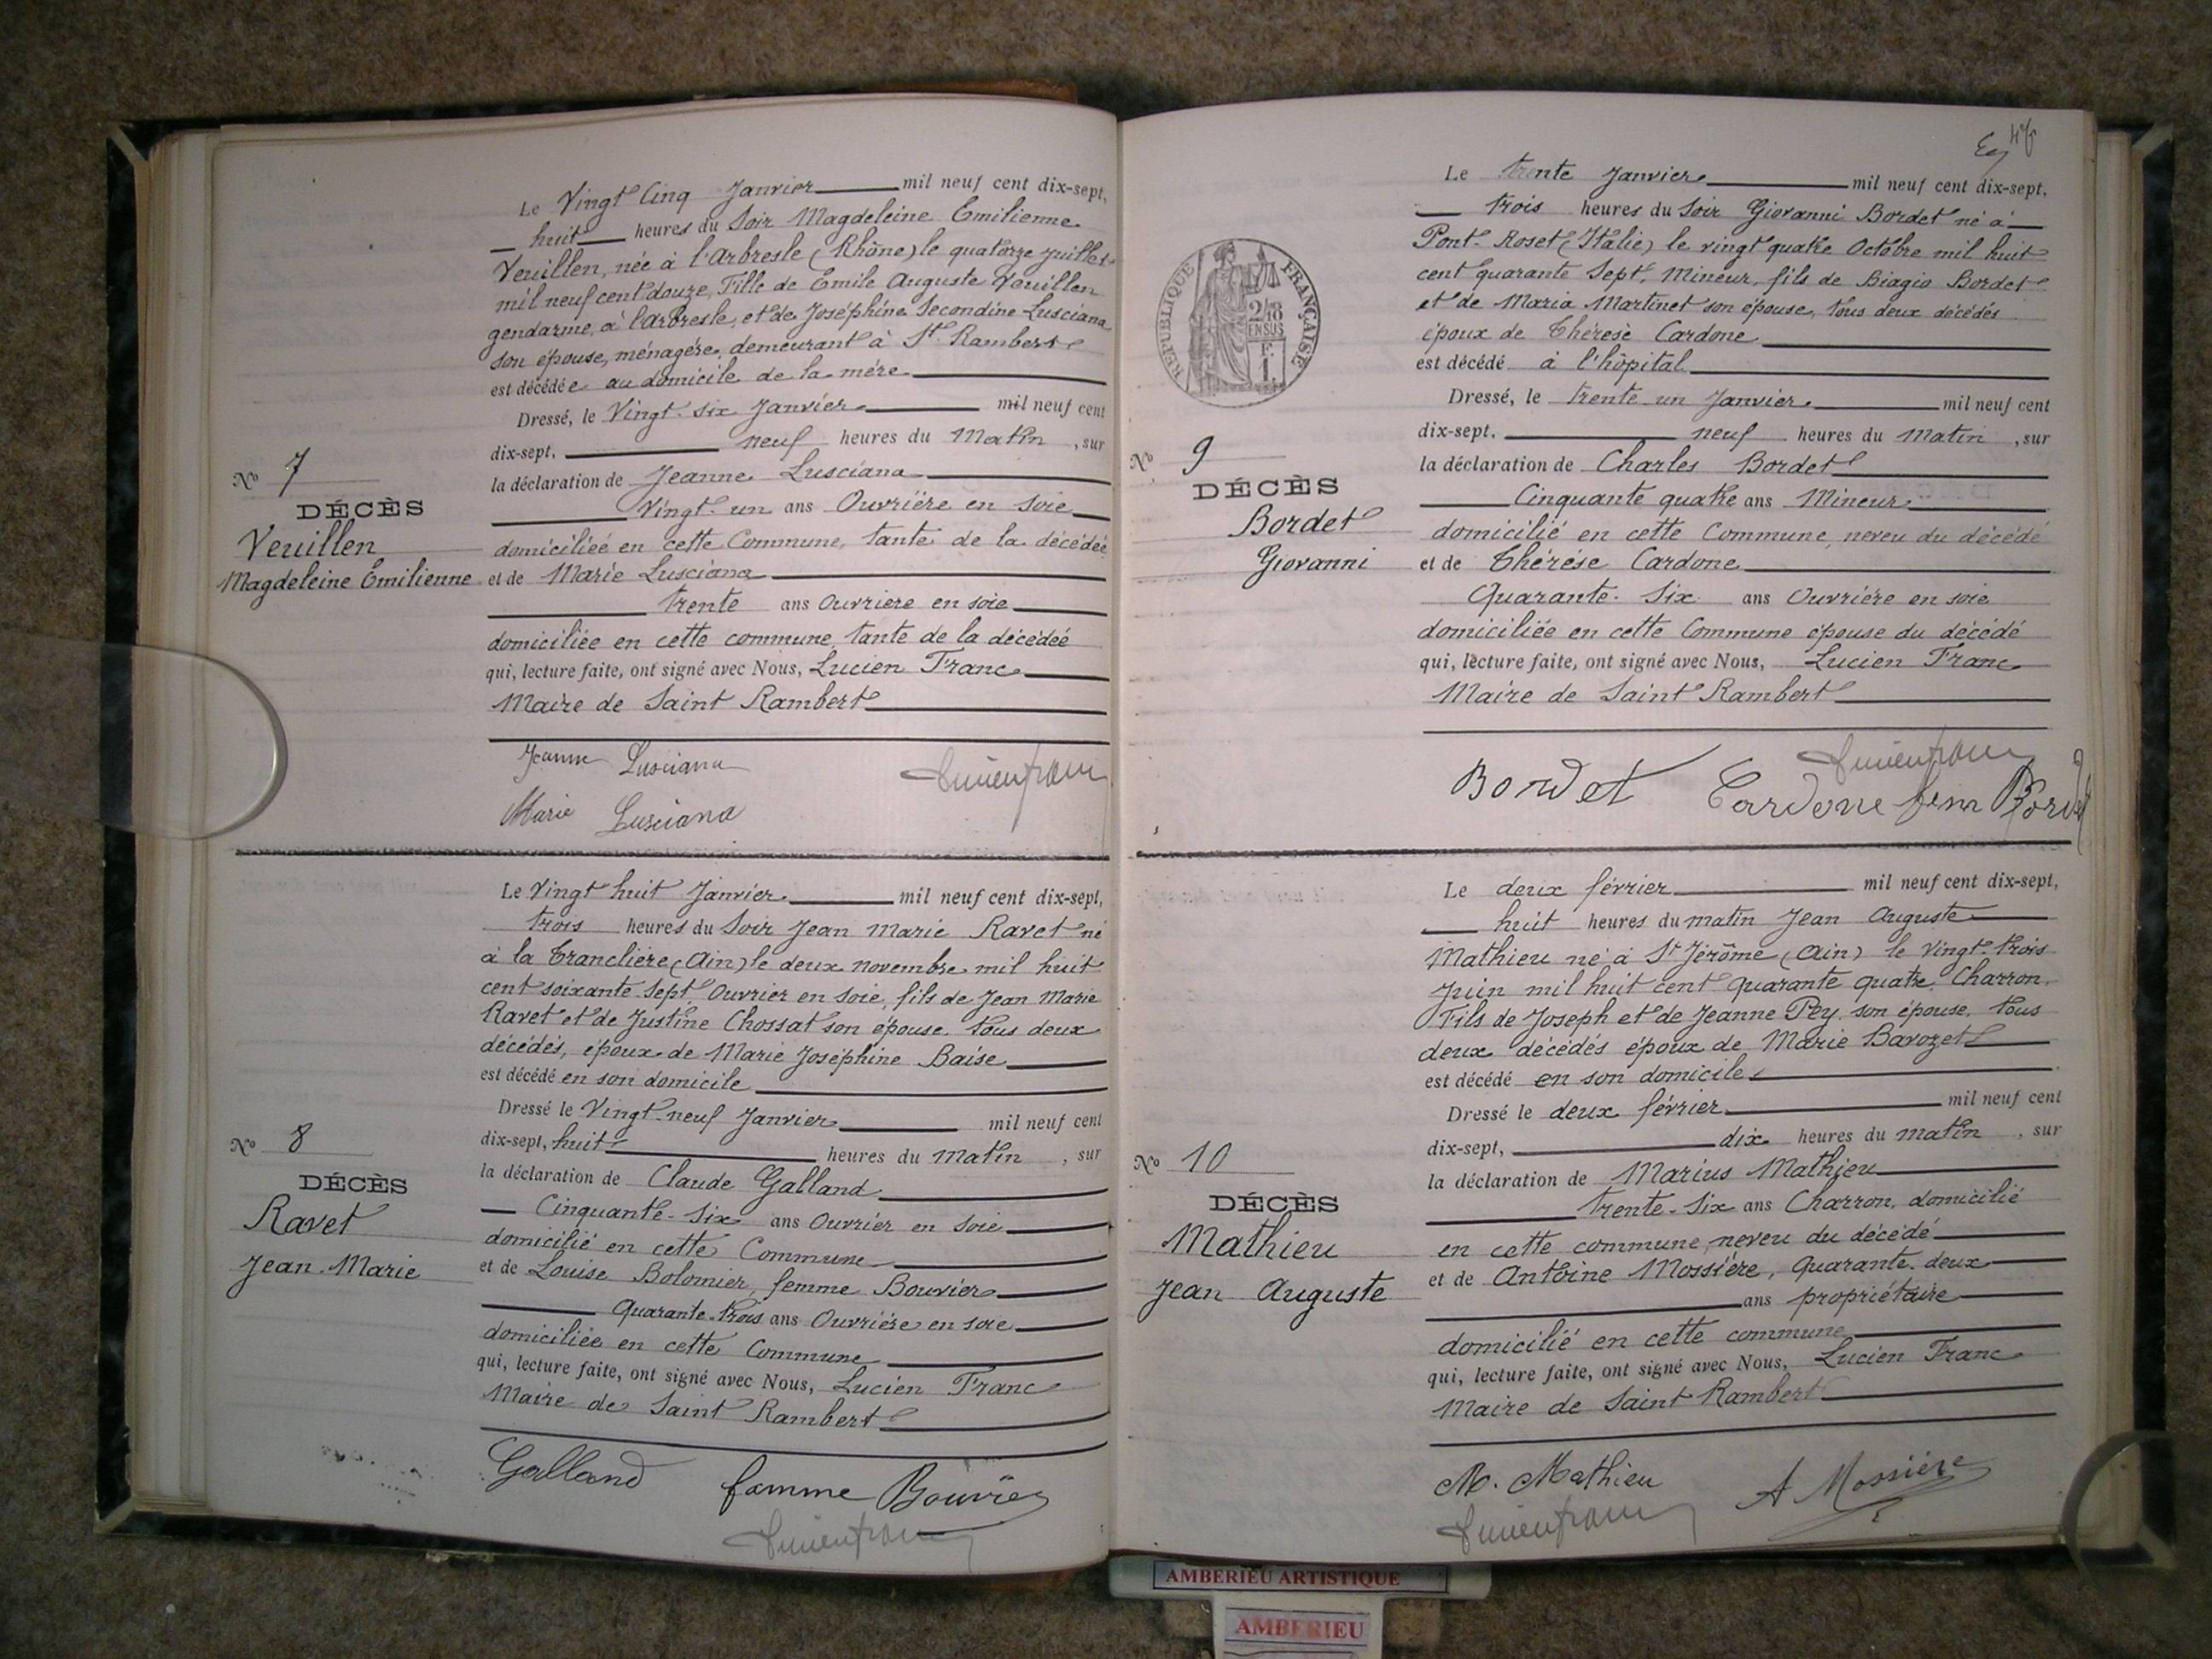 Le Vingt Cinq Janvier mil neuf cent dix-sept,
huit heures du Soir Magdeleine Emilienne
Veuillen, née à l'Arbresle (Rhône) le quatorze juillet
mil neuf cent douze, Fille de Emile Auguste Veuillen
gendarme, à l'Arbresle, et de Joséphine Secondine Lusciana
son épouse, ménagère, demeurant à St Rambert
est décédée au domicile de la mère
Dressé, le Vingt-six Janvier mil neuf cent
dix-sept, neuf heures du Matin, sur
la déclaration de Jeanne Lusciana
Vingt-un ans Ouvrière en soie
domiciliée en cette Commune, tante de la décédée
et de Marie Lusciana
trente ans ouvrière en soie
domiciliée en cette commune, tante de la décédée
qui, lecture faite, ont signé avec Nous, Lucien Franc
Maire de Saint Rambert
No 7
DÉCÈS
Veuillen
Magdeleine Emilienne
Jeanne Lusciana
Marie Lusciana
Lucien Franc
Le Vingt huit Janvier mil neuf cent dix-sept,
trois heures du Soir Jean Marie Ravet né
à la Tranclière (Ain) le deux novembre mil huit
cent soixante-sept, Ouvrier en soie, fils de Jean Marie
Ravet et de Justine Chossat son épouse, tous deux
décédés, époux de Marie Joséphine Baise
est décédé en son domicile
Dressé le Vingt-neuf Janvier mil neuf cent
dix-sept, huit heures du Matin, sur
la déclaration de Claude Galland
Cinquante-six ans Ouvrier en soie
domicilié en cette Commune
et de Louise Bolomier, femme Bouvier
Quarante-trois ans Ouvrière en soie
domiciliée en cette Commune
qui, lecture faite, ont signé avec Nous, Lucien Franc
Maire de Saint Rambert
No 8
DÉCÈS
Ravet
Jean-Marie
Galland femme Bouvier
Lucien Franc
Le trente Janvier mil neuf cent dix-sept,
trois heures du Soir Giovanni Bordet né à
Pont-Roset (Italie) le vingt quatre Octobre mil huit
cent quarante Sept, Mineur, fils de Biagio Bordet
et de Maria Martinet son épouse, tous deux décédés
époux de Thérèse Cardone
est décédé à l'hôpital
Dressé, le trente-un Janvier mil neuf cent
dix-sept, neuf heures du Matin, sur
la déclaration de Charles Bordet
Cinquante quatre ans Mineur
domicilié en cette Commune, neveu du décédé
et de Thérèse Cardone
Quarante-Six ans Ouvrière en soie
domiciliée en cette Commune épouse du décédé
qui, lecture faite, ont signé avec Nous, Lucien Franc
Maire de Saint Rambert
RÉPUBLIQUE FRANÇAISE
2/10
EN SUS
F.
1.
No 9
DÉCÈS
Bordet
Giovanni
Lucien Franc
Bordet Cardone fem Bordet
Le deux février mil neuf cent dix-sept,
huit heures du matin Jean Auguste
Mathieu né à St Jérôme (Ain) le Vingt-trois
Juin mil huit cent quarante quatre, Charron,
Fils de Joseph et de Jeanne Pey, son épouse, tous
deux décédés époux de Marie Barozet
est décédé en son domicile
Dressé le deux février mil neuf cent
dix-sept, dix heures du matin, sur
la déclaration de Marius Mathieu
trente-Six ans Charron, domicilié
en cette commune, neveu du décédé
et de Antoine Mossière, quarante-deux
ans propriétaire
domicilié en cette commune
qui, lecture faite, ont signé avec Nous, Lucien Franc
Maire de Saint Rambert
No 10
DÉCÈS
Mathieu
Jean Auguste
M. Mathieu A Mossière
Lucien Franc
AMBERIEU ARTISTIQUE
AMBERIEU